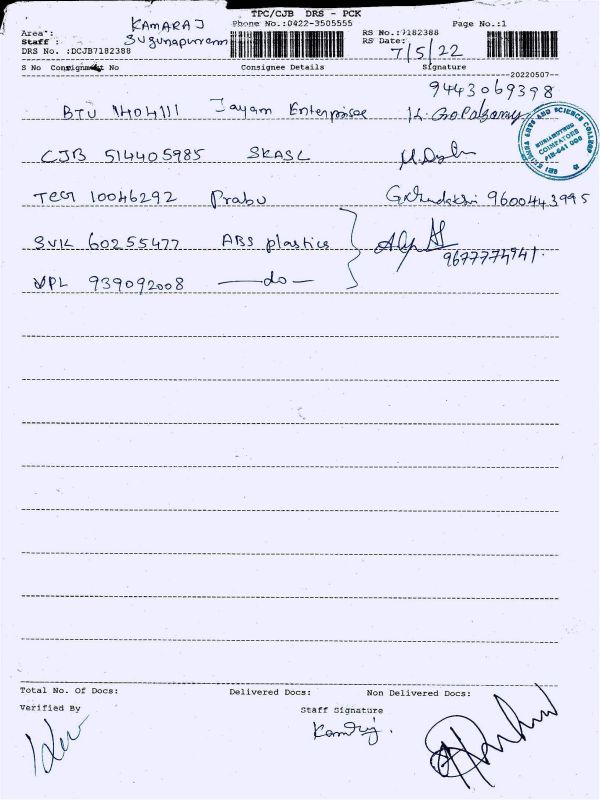 TPC/CJB DRS - PCK
Area: KAMARAJ Phone No.:0422-3505555 Page No.:1
Staff : Sugunapuram RS No.:7182388
DRS No. :DCJB7182388 RS Date: 7/5/22
S No Consignment No Consignee Details Signature
20220507--
9443069398
BTU 1404111 Jayam Enterprise K. Gopalsamy
CJB 514405985 SKASC
SRI KRISHNA ARTS AND SCIENCE COLLEGE
KUNIAMUTHUR
COIMBATORE
PIN-641 008
TCR 10046292 Prabu 9600443995
SVK 60255477 ABS plastics
9677774941.
VPL 939092008 —do—
Total No. Of Docs: Delivered Docs: Non Delivered Docs:
Verified By Staff Signature
Kamraj.